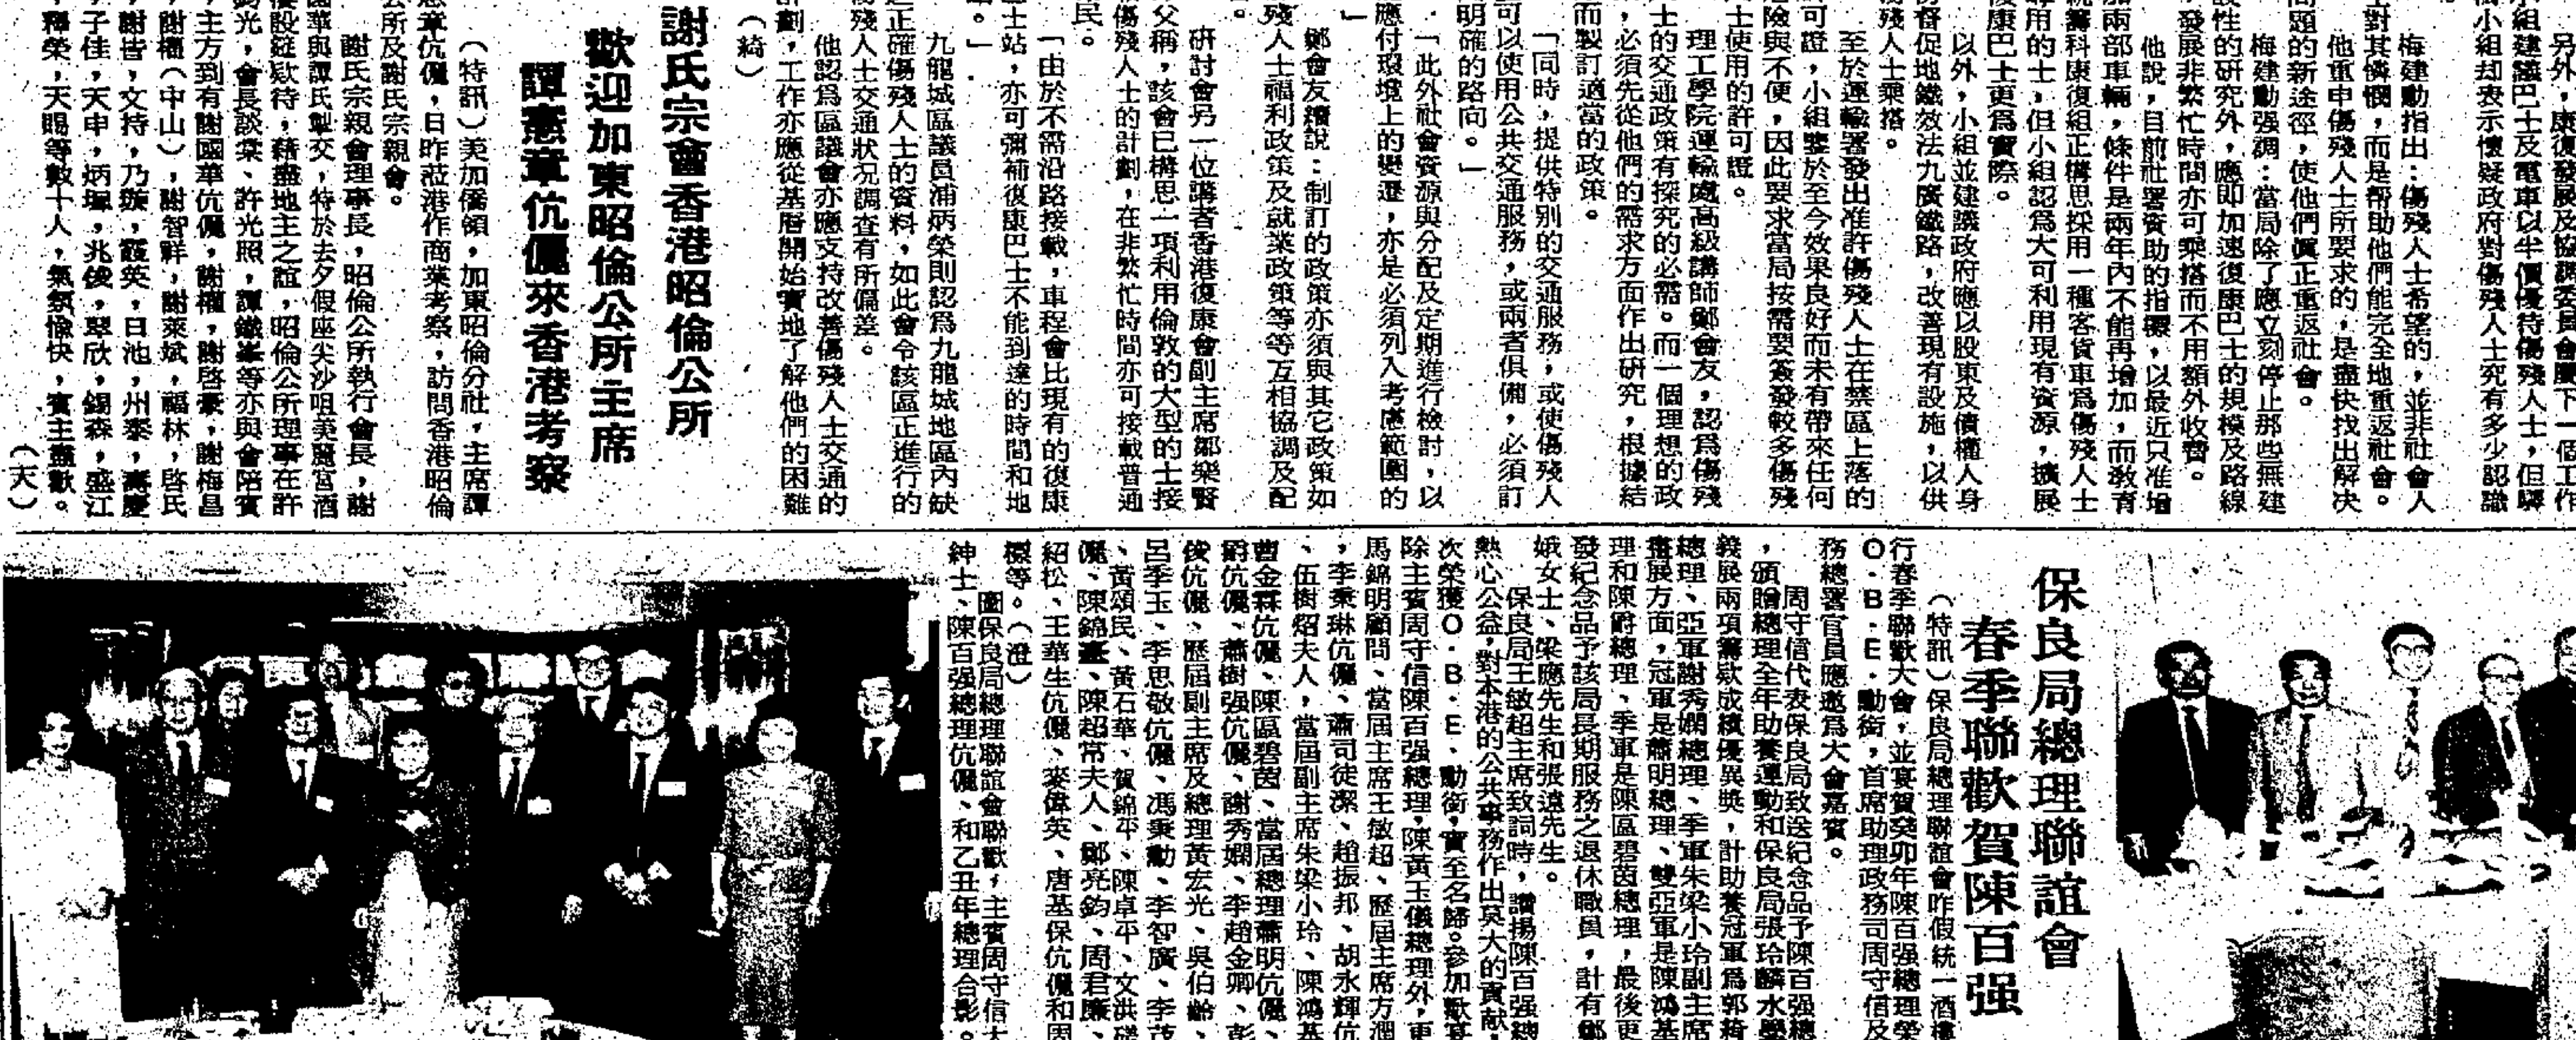 另外，康復發展及協調委員會屬下一個工作
小組建議巴士及電車以半價優待傷殘人士，但
小組却表示懷疑政府對傷殘人士究有多少認識
梅建勳指出：傷殘人士希望的，並非社會人
對其憐憫，而是帮助他們能完全地重返社會。
他重申傷殘人士所要求的，是盡快找出解决
問題的新途徑，使他們眞正重返社會。
梅建勳强調：當局除了應立刻停止那些無建
設性的研究外，應即加速復康巴士的規模及路線
發展非繁忙時間亦可乘搭而不用額外收費。
他說，目前社署資助的指標，以最近只准增
加兩部車輛，條件是兩年內不能再增加，而敎育
統籌科康復組正構思採用一種客貨車爲傷殘人士
專用的士，但小組認爲大可利用現有資源，擴展
復康巴士更爲實際。
以外，小組並建議政府應以股東及債權人身
份督促地鐵效法九廣鐵路，改善現有設施，以供
傷殘人士乘搭。
至於運輸署發出准許傷殘人士在禁區上落的
許可證，小組鑒於至今效果良好而未有帶來任何
危險與不便，因此要求當局按需要簽發較多傷殘
人士使用的許可證。
理工學院運輸處高級講師鄭會友，認爲傷殘
人士的交通政策有探究的必需。而一個理想的政
，必須先從他們的需求方面作出研究，根據結
而製訂適當的政策。
「同時，提供特別的交通服務，或使傷殘人
可以使用公共交通服務，或兩者俱備，必須訂
明確的路向。」
「此外社會資源與分配及定期進行檢討，以
應付環境上的變遷，亦是必須列入考慮範圍的
」
鄭會友續說：制訂的政策亦須與其它政策如
殘人士福利政策及就業政策等等互相協調及配
。
研討會另一位講者香港復康會副主席鄒樂賢
父稱，該會已構思一項利用倫敦的大型的士接
傷殘人士的計劃，在非繁忙時間亦可接載普通
民。
「由於不需沿路接載，車程會比現有的復康
巴士站，亦可彌補復康巴士不能到達的時間和地
。」
九龍城區議員浦炳榮則認爲九龍城地區內缺
乏正確傷殘人士的資料，如此會令該區正進行的
傷殘人士交通狀况調查有所偏差。
他認爲區議會亦應支持改善傷殘人士交通的
計劃，工作亦應從基層開始實地了解他們的困難
（綺）
謝氏宗會香港昭倫公所
歡迎加東昭倫公所主席
譚憲章伉儷來香港考察
（特訊）美加僑領，加東昭倫分社，主席譚
憲章伉儷，日昨蒞港作商業考察，訪問香港昭倫
公所及謝氏宗親會。
謝氏宗親會理事長，昭倫公所執行會長，謝
國華與譚氏摯交，特於去夕假座尖沙咀美麗宮酒
樓設筵欵待，藉盡地主之誼，昭倫公所理事在許
鈞光，會長談棠、許光照，譚鐵峯等亦與會陪賓
，主方到有謝國華伉儷，謝權，謝啓豪，謝梅昌
，謝權（中山），謝智群，謝來斌，福林，啓民
，謝皆，文持，乃𤩄，霞英，日池，州泰，壽慶
，子佳，天申，炳墀，兆俊，翠欣，錫森，盛江
，釋榮，天賜等數十人，氣氛愉快，賓主盡歡。
（天）
保良局總理聯誼會
春季聯歡賀陳百强
（特訊）保良局總理聯誼會昨假統一酒樓
行春季聯歡大會，並宴賀癸卯年陳百强總理榮
O．B．E．勳銜，首席助理政務司周守信及
務總署官員應邀爲大會嘉賓。
周守信代表保良局致送紀念品予陳百强總
，頒贈總理全年助養運動和保良局張玲麟水學
義展兩項籌欵成績優異獎，計助養冠軍爲郭綺
總理、亞軍謝秀嫻總理、季軍朱梁小玲副主席
畫展方面，冠軍是蕭明總理、雙亞軍是陳鴻基
理和陳爵總理、季軍是陳區碧茵總理，最後更
發紀念品予該局長期服務之退休職員，計有鄭
娥女士、梁應先生和張遠先生。
保良局王敏超主席致詞時，讚揚陳百强總
熱心公益，對本港的公共事務作出莫大的貢献，
次榮獲O．B．E．勳銜，實至名歸。參加歡宴
除主賓周守信陳百强總理，陳黃玉儀總理外，更
馬錦明顧問、當屆主席王敏超、歷屆主席方潤
，李秉琳伉儷、蕭司徒潔、趙振邦、胡永輝伉
、伍樹熠夫人，當屆副主席朱梁小玲、陳鴻基
曹金霖伉儷、陳區碧茵、當屆總理蕭明伉儷、
爵伉儷、蕭樹强伉儷、謝秀嫻、李趙金卿、彭
俊伉儷、歷屆副主席及總理黃宏光、吳伯齡、
呂季玉、李思敬伉儷、馮秉勳、李智廣、李茂
、黃頌民、黃石華、賀錦平、陳卓平、文洪磋
儷、陳錦臺、陳超常夫人、鄭亮鈞、周君廉、
紹松、王華生伉儷、麥偉英、唐基保伉儷和周
標等。（澄）
圖保良局總理聯誼會聯歡，主賓周守信太
紳士、陳百强總理伉儷、和乙丑年總理合影。